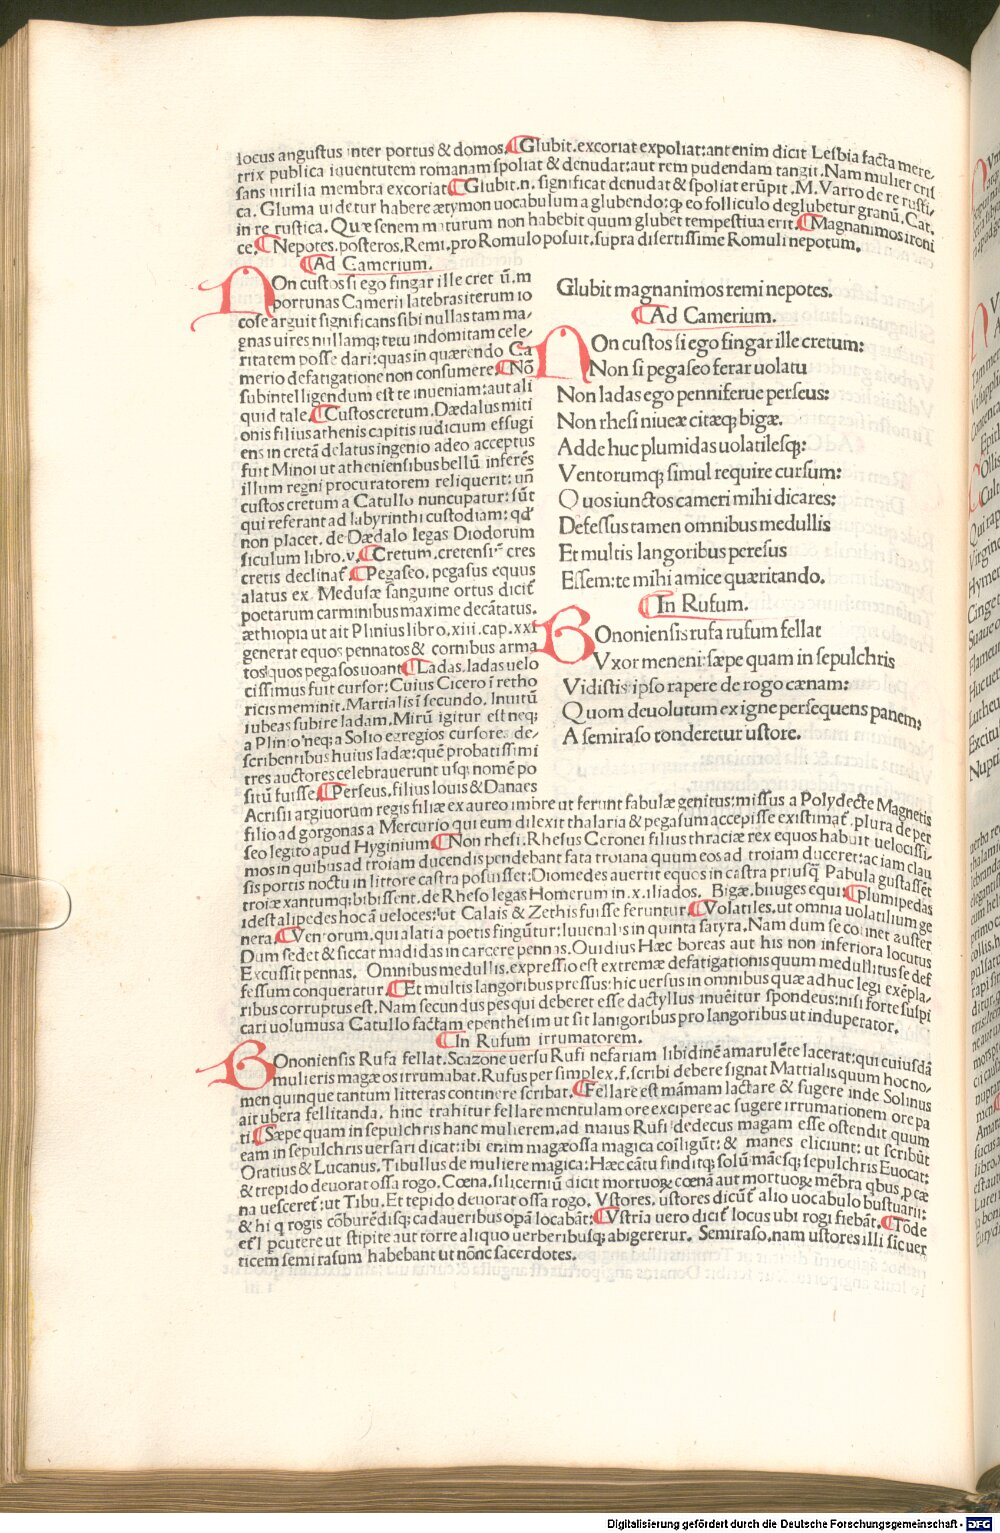 locus angustus inter portus & domos. ¶Glubit. excoriat expoliat: ant enim dicit Lesbia facta mere,
trix publica iuuentutem romanam spoliat & denudat: aut rem pudendam tangit. Nam mulier cris
sans uirilia membra excoriat ¶Glubit.n. significat denudat & spoliat erūpit. M. Varro de re rusti,
ca. Gluma uidetur habere ætymon uocabulum a glubendo: ꝙ eo folliculo deglubetur granū. Cat.
in re rustica. Quæ senem maturum non habebit quum glubet tempestiua erit. ¶Magnanimos ironi
ce. ¶Nepotes. posteros. Remi. pro Romulo posuit. supra disertissime Romuli nepotum.
¶Ad Camerium.
NOn custos si ego fingar ille cret ū. m
portunas Camerii latebras iterum io
cose arguit significans sibi nullas tam ma,
gnas uires nullamq; tem indomitam cele,
ritatem posse dari: quas in quærendo Ca
merio defatigatione non consumere. ¶Nō
subintelligendum est te inueniam: aut ali
quid tale. ¶Custos cretum. Dædalus miti
onis filius athenis capitis iudicium effugi
ens in cretā delatus ingenio adeo acceptus
fuit Minoi ut atheniensibus bellū inferēs
illum regni procuratorem reliquerit: un̄
custos cretum a Catullo nuncupatur: sūt
qui referant ad labyrinthi custodiam: qđ
non placet. de Dædalo legas Diodorum
siculum libro. v. ¶Cretum. cretensiū cres
cretis declinat̄. ¶Pegaseo. pegasus equus
alatus ex Medusæ sanguine ortus dicit̄
poetarum carminibus maxime decātatus.
æthiopia ut ait Plinius libro. xiii. cap. xxi
generat equos pennatos & cornibus arma
tos: quos pegasos uoant ¶Ladas. ladas uelo
cissimus fuit cursor: Cuius Cicero ī retho
ricis meminit. Martialis ī secundo. Inuitū
iubeas subire ladam. Mirū igitur est neq;
a Plinio neq; a Solio egregios cursores de,
scribentibus huius ladæ: quē probatissimi
tres auctores celebrauerunt usq; nomē po
situ fuisse. ¶Perseus. filius Iouis & Danaes
Glubit magnanimos remi nepotes.
¶Ad Camerium.
NOn custos si ego fingar ille cretum:
Non si pegaseo ferar uolatu
Non ladas ego penniferue perseus:
Non rhesi niueæ citæq; bigæ.
Adde huc plumidas uolatilesq;:
Ventorumq; simul require cursum:
Quos iunctos cameri mihi dicares:
Defessus tamen omnibus medullis
Et multis langoribus peresus
Essem: te mihi amice quæritando.
¶In Rufum.
BOnoniensis rufa rufum fellat
Vxor meneni: sæpe quam in sepulchris
Vidistis ipso rapere de rogo cænam:
Quom deuolutum ex igne persequens panem:
A semiraso tonderetur ustore.
Acrisii argiuorum regis filiæ ex aureo imbre ut ferunt fabulæ genitus: missus a Polydecte Magnetis
filio ad gorgonas a Mercurio qui eum dilexit thalaria & pegasum accepisse existimat̄. plura de per
seo legito apud Hyginium. ¶Non rhesi. Rhesus Ceronei filius thraciæ rex equos habuit uelocissi,
mos in quibus ad troiam ducendis pendebant fata troiana quum eos ad troiam duceret: ac iam clau
sis portis noctu in littore castra posuisset: Diomedes auertit equos in castra priusq̄ Pabula gustasset
troiæ xantumq; bibissent. de Rheso legas Homerum in .x. iliados. Bigæ. biiuges equi: ¶plumipedas
id est alipedes hoc ā ueloces: ut Calais & Zethis fuisse feruntur. ¶Volatiles. ut omnia uolatilium ge
nera. ¶Ventorum. qui alati a poetis fingūtur: Iuuenalis in quinta satyra. Nam dum se cotinet auster
Dum sedet & siccat madidas in carcere pennas. Ouidius Hæc boreas aut his non inferiora locutus
Excussit pennas. Omnibus medullis. expressio est extremæ defatigationis quum medullitus se def
fessum conqueratur. ¶Et multis langoribus pressus: hic uersus in omnibus quæ adhuc legi exēpla,
ribus corruptus est. Nam secundus pes qui deberet esse dactyllus inuēitur spondeus: nisi forte suspi
cari uolumus a Catullo factam epenthesim ut sit lanigoribus pro langoribus ut induperator.
¶In Rufum irrumatorem.
BOnoniensis Rufa fellat. Scazone uersu Rufi nefariam libidinē amarulēte lacerat: qui cuiusdā
mulieris magæ os irrumabat. Rufus per simplex. f. scribi debere signat Mattialis quum hoc no,
men quinque tantum litteras continere scribat. ¶Fellare est māmam lactare & sugere inde Solinus
ait ubera fellitanda. hinc trahitur fellare mentulam ore excipere ac sugere irrumationem ore pa
ti ¶Sæpe quam in sepulchris hanc mulierem. ad maius Rufi dedecus magam esse ostendit quum
eam in sepulchris uersari dicat: ibi enim magæ ossa magica colligūt: & manes eliciunt: ut scribūt
Oratius & Lucanus. Tibullus de muliere magica: Hæc cātu finditq; solū māesq; sepulchris Euocat:
& trepido deuorat ossa rogo. Cœna. silicerniū dicit mortuoꝝ cœnā aut mortuoꝝ mēbra qbus p cæ
na uesceret̄: ut Tibu. Et tepido deuorat ossa rogo. Vstores. ustores dicūt̄ alio uocabulo bustuarii:
& hi q rogis cōburēdisq; cadaueribus opā locabāt: ¶Vstria uero dicit̄ locus ubi rogi fiebāt. ¶Tōde
et̄ ī pcutere ut stipite aut torre aliquo uerberibusq; abigererur. Semiraso. nam ustores illi sic uer
ticem semi rasum habebant ut nōnc sacerdotes.
Digitalisierung gefördert durch die Deutsche Forschungsgemeinschaft - DFG